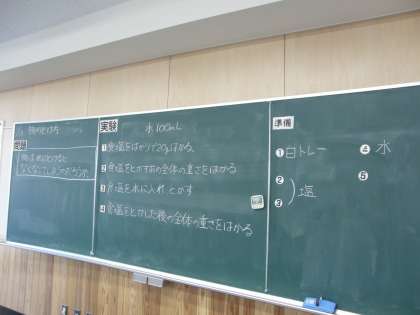 物のとけ方
問題
物は水にとけると
なくなってしまうのだろうか。
実験
水100mL
1 食塩をはかりで20gはかる。
2 食塩をとかす前の全体の重さをはかる
3 食塩を水に入れ とかす
4 食塩をとかした後の全体の重さをはかる
準備
1 白トレー
2
3 塩
4 水
5